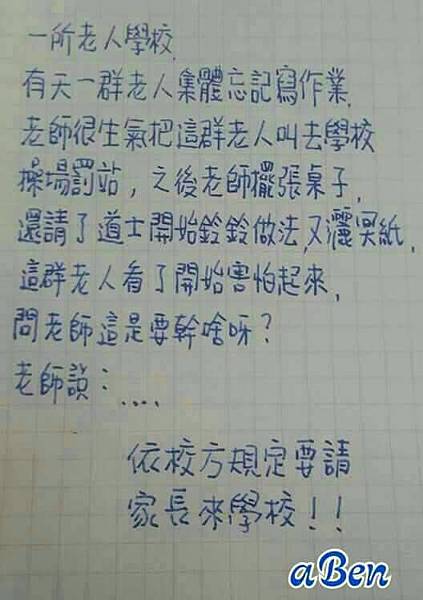 一所老人學校,
有天一群老人集體忘記寫作業,
老師很生氣把這群老人叫去學校
操場罰站，之後老師擺張桌子,
還請了道士開始鈴鈴做法,又灑冥紙,
這群老人看了開始害怕起來,
問老師這是要幹啥呀?
老師說:....
依校方規定要請
家長來學校!!
aBen